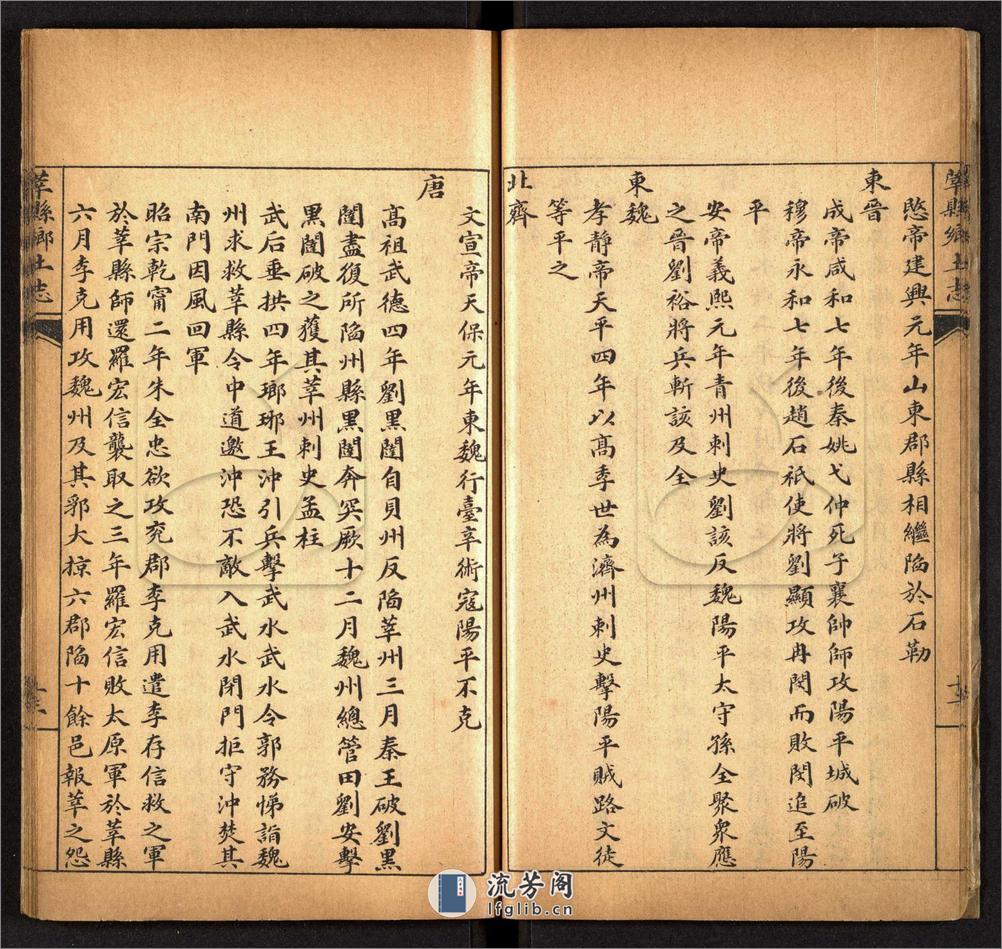 莘縣鄉土志
愍帝建興元年山東郡縣相繼陷於石勒
東晉
成帝咸和七年後秦姚弋仲死子襄帥師攻陽平城破
穆帝永和七年後趙石祇使將劉顯攻冉閔而敗閔追至陽
平
安帝義熙元年青州刺史劉該反魏陽平太守孫全聚眾應
之晉劉裕將兵斬該及全
東魏
孝靜帝天平四年以高季世為濟州刺史擊陽平賊路文徒
等平之
北齊
文宣帝天保元年東魏行臺辛術寇陽平不克
唐
高祖武德四年劉黑闥自貝州反陷莘州三月秦王破劉黑
闥盡復所陷州縣黑闥奔突厥十二月魏州總管田劉安擊
黑闥破之獲其莘州刺史孟柱
武后垂拱四年瑯琊王沖引兵擊武水武水令郭務悌詣魏
州求救莘縣令中道邀沖恐不敵入武水閉門拒守沖焚其
南門因風回軍
昭宗乾甯二年朱全忠欲攻兗鄆李克用遣李存信救之軍
於莘縣師還羅宏信襲取之三年羅宏信敗太原軍於莘縣
六月李克用攻魏州及其郛大掠六郡陷十餘邑報莘之怨
莘縣鄉土志
十三
流芳阁
lfglib.cn